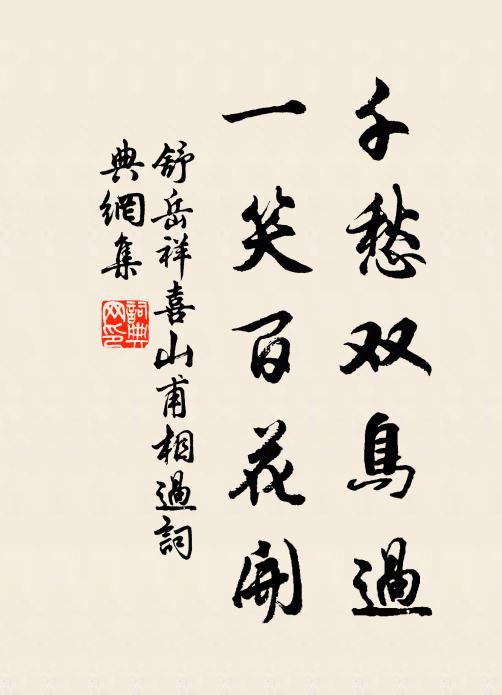 千愁双鳥過
一笑百花開
舒岳祥喜山甫相過詞
典網集
詞典網印